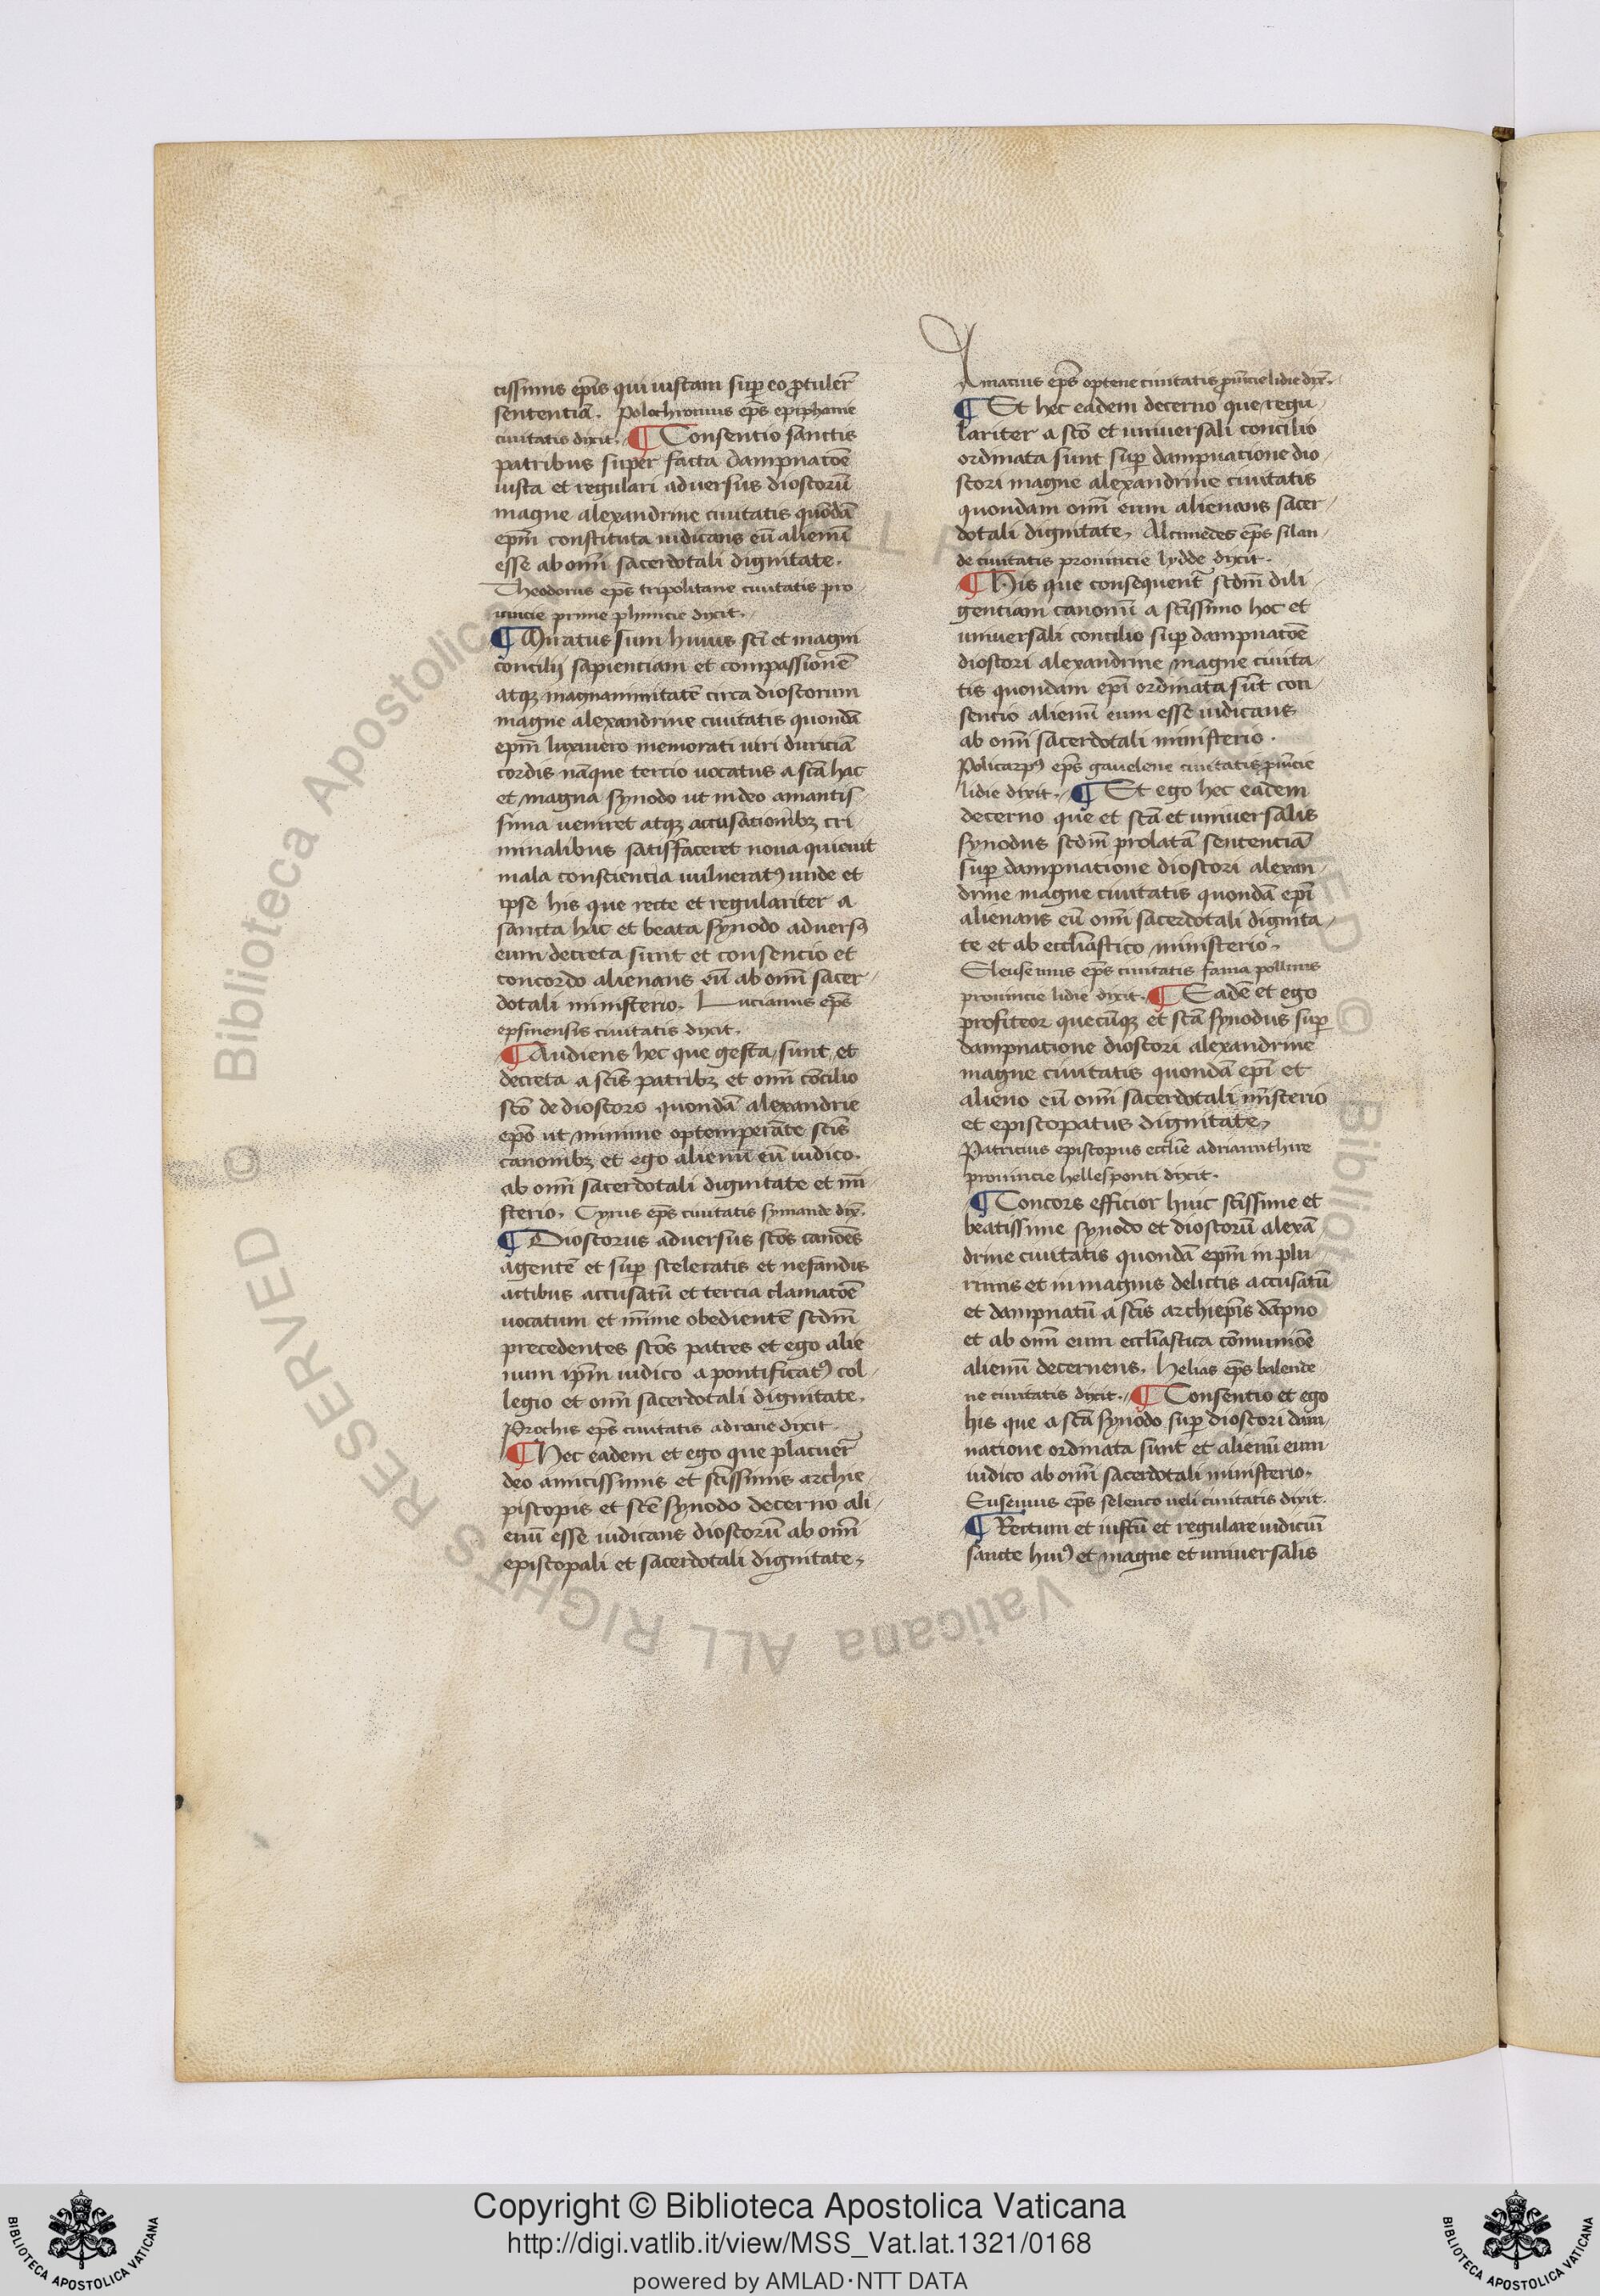 cissimis ep̄is qui iustam sup̱ eo ꝓtuler̄
sententiā. Polochronius ep̄s epiphanie
ciuitatis dixit. ¶ Consentio sanctis
patribus super facta dampnatōe
iusta et regulari aduersus dioscorū
magne alexandrine ciuitatis quōdā
ep̄m constituta iudicans eū alienū
esse ab om̄i sacerdotali dignitate.
Theodorus ep̄s tripolitane ciuitatis pro-
uincie prime phinicie dixit.
¶ Miratus sum huius sc̄i et magni
concilij sapienciam et compassionē
atqꝫ magnanimitatē circa dioscorum
magne alexandrine ciuitatis quondā
ep̄m luxiuero memorati uiri duriciā
cordis nāque tercio uocatus a sc̄a hac
et magna synodo ut in deo amantis-
sima ueniret atqꝫ accusacionibꝫ cri-
minalibus satisfaceret noua quieuit
mala consciencia uulneratꝰ unde et
ipse his que recte et regulariter a
sancta hac et beata synodo aduersꝰ
eum decreta sunt et consencio et
concordo alienans eū ab om̄i sacer-
dotali ministerio. Lucianus ep̄s
epsinensis ciuitatis dixit.
¶ Audiens hec que gesta sunt et
decreta a sc̄is patribꝫ et om̄i cōcilio
sc̄o de dioscoro quondā alexandrie
ep̄o ut minime optemperāte sc̄is
canonibꝫ et ego alienū eū iudico.
ab om̄i sacerdotali dignitate et mī-
sterio. Cyrus ep̄s ciuitatis symande dix̄.
¶ Dioscorus aduersus sc̄os canōes
agentē et sup̱ sceleratis et nefandis
actibus accusatū et tercia clamatōe
uocatum et mīme obedientē scdm̄
precedentes sc̄os patres et ego alie
num ip̄m iudico a pontificatꝰ col-
legio et om̄i sacerdotali dignitate.
Prochis ep̄s ciuitatis adrane dixit
¶ Hec eadem et ego que placuer̄
deo amicissimis et sc̄issimis archie-
piscopis et sc̄e synodo decerno ali-
enū esse iudicans dioscorū ab om̄i
episcopali et sacerdotali dignitate,
Amacius ep̄s optene ciuitatis ꝓuīcie lidie dix̄.
¶ Et hec eadem decerno que regu-
lariter a sc̄o et uniuersali concilio
ordinata sunt sup̱ dampnacione dio-
scori magne alexandrine ciuitatis
quondam om̄i eum alienans sacer-
dotali dignitate, Alcimedes ep̄s silan-
de ciuitatis prouincie lydde dixit.
¶ His que consequent̄ scdm̄ dili-
gentiam canonū a sc̄issimo hoc et
uniuersali concilio sup̱ dampnatōe
dioscori alexandrine magne ciuita-
tis quondam ep̄i ordinata sūt con-
sencio alienū eum esse iudicans
ab om̄i sacerdotali ministerio.
Policarpꝰ ep̄s gauelene ciuitatis ꝓuīcie
lidie dixit. ¶ Et ego hec eadem
decerno que et sc̄a et uniuersalis
synodus scdm̄ prolatā sententiā
sup̱ dampnacione dioscori alexan-
drine magne ciuitatis quondā ep̄i
alienans eū om̄i sacerdotali dignita-
te et ab eccl̄iastico ministerio,
Eleusenius ep̄s ciuitatis fama pollinis
prouincie lidie dixit. ¶ Eadē et ego
profiteor quecūqꝫ et sc̄a synodus sup̱
dampnacione dioscori alexandrine
magne ciuitatis quondā ep̄i et
alieno eū om̄i sacerdotali mīsterio
et episcopatus dignitate,
Patricius episcopus eccl̄ie adrianuthire
prouincie hellesponti dixit.
¶ Concors efficior huic sc̄issime et
beatissime synodo et dioscorū alexā-
drine ciuitatis quondā ep̄m in plu-
rimis et in magnis delictis accusatū
et dampnatū a sc̄is archiep̄is dāpno
et ab om̄i eum eccl̄iastica cōmuniōe
alienū decernens. Helias ep̄s balende
ne ciuitatis dixit. ¶ Consentio et ego
his que a sc̄a synodo sup̱ dioscori dam-
natione ordinata sunt et alienū eum
iudico ab om̄i sacerdotali ministerio.
Eusenius ep̄s selenco ueli ciuitatis dixit.
¶ Rectum et iustū et regulare iudiciū
sancte huiꝰ et magne et uniuersalis
© Biblioteca Apostolica Vaticana ALL RIGHTS RESERVED © Biblioteca Apostolica Vaticana ALL RIGHTS RESERVED
Copyright © Biblioteca Apostolica Vaticana
http://digi.vatlib.it/view/MSS_Vat.lat.1321/0168
powered by AMLAD·NTT DATA
BIBLIOTECA APOSTOLICA VATICANA
BIBLIOTECA APOSTOLICA VATICANA